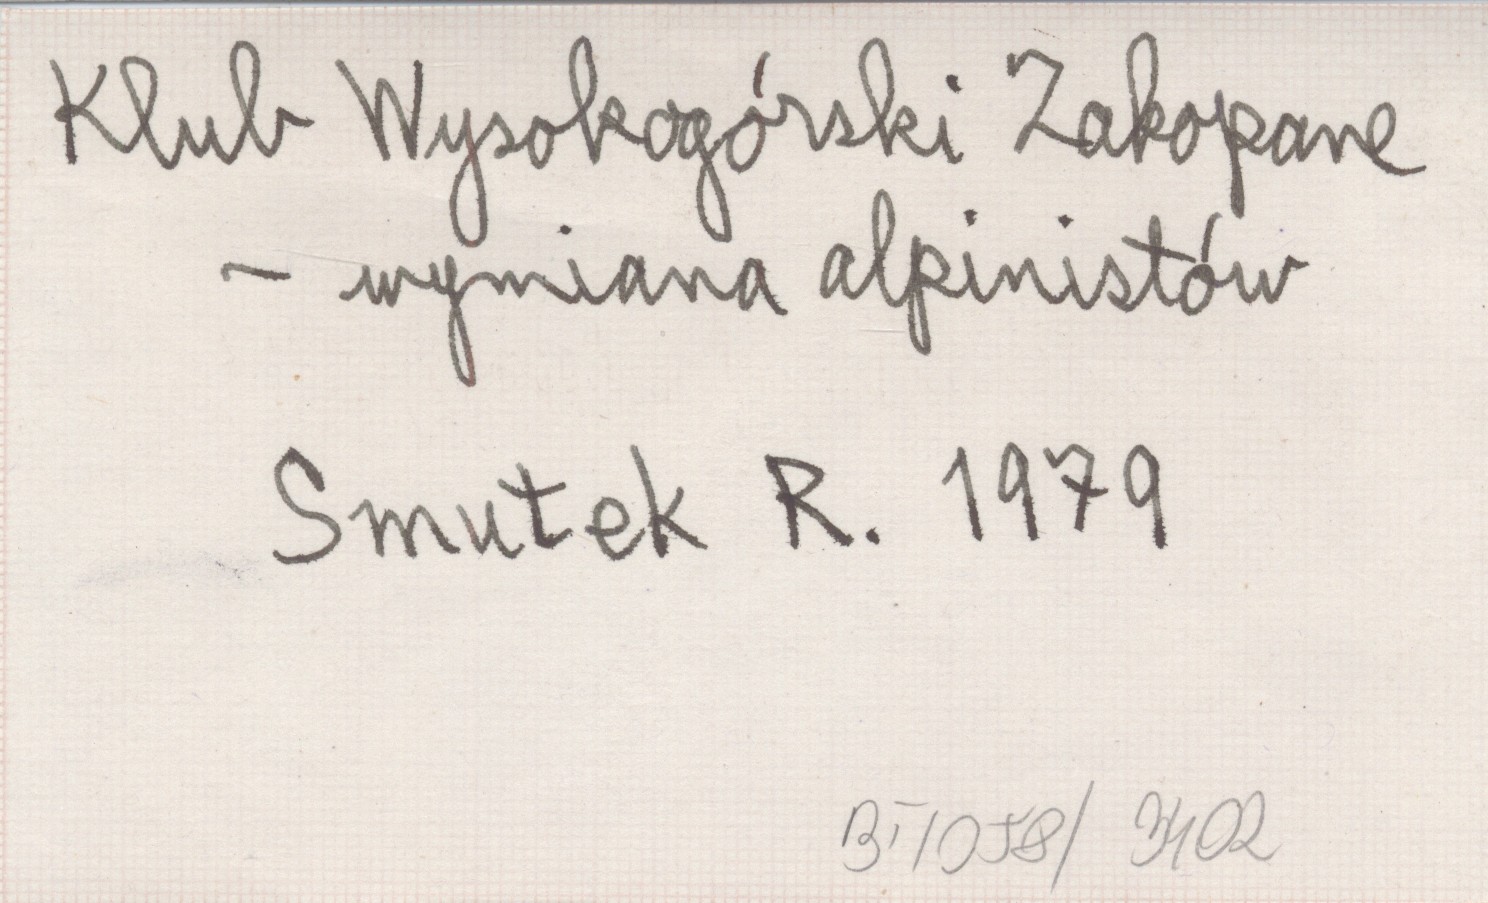 Klub Wysokogórski Zakopane
- wymiana alpinistów
Smutek R. 1979
BI/058/3402